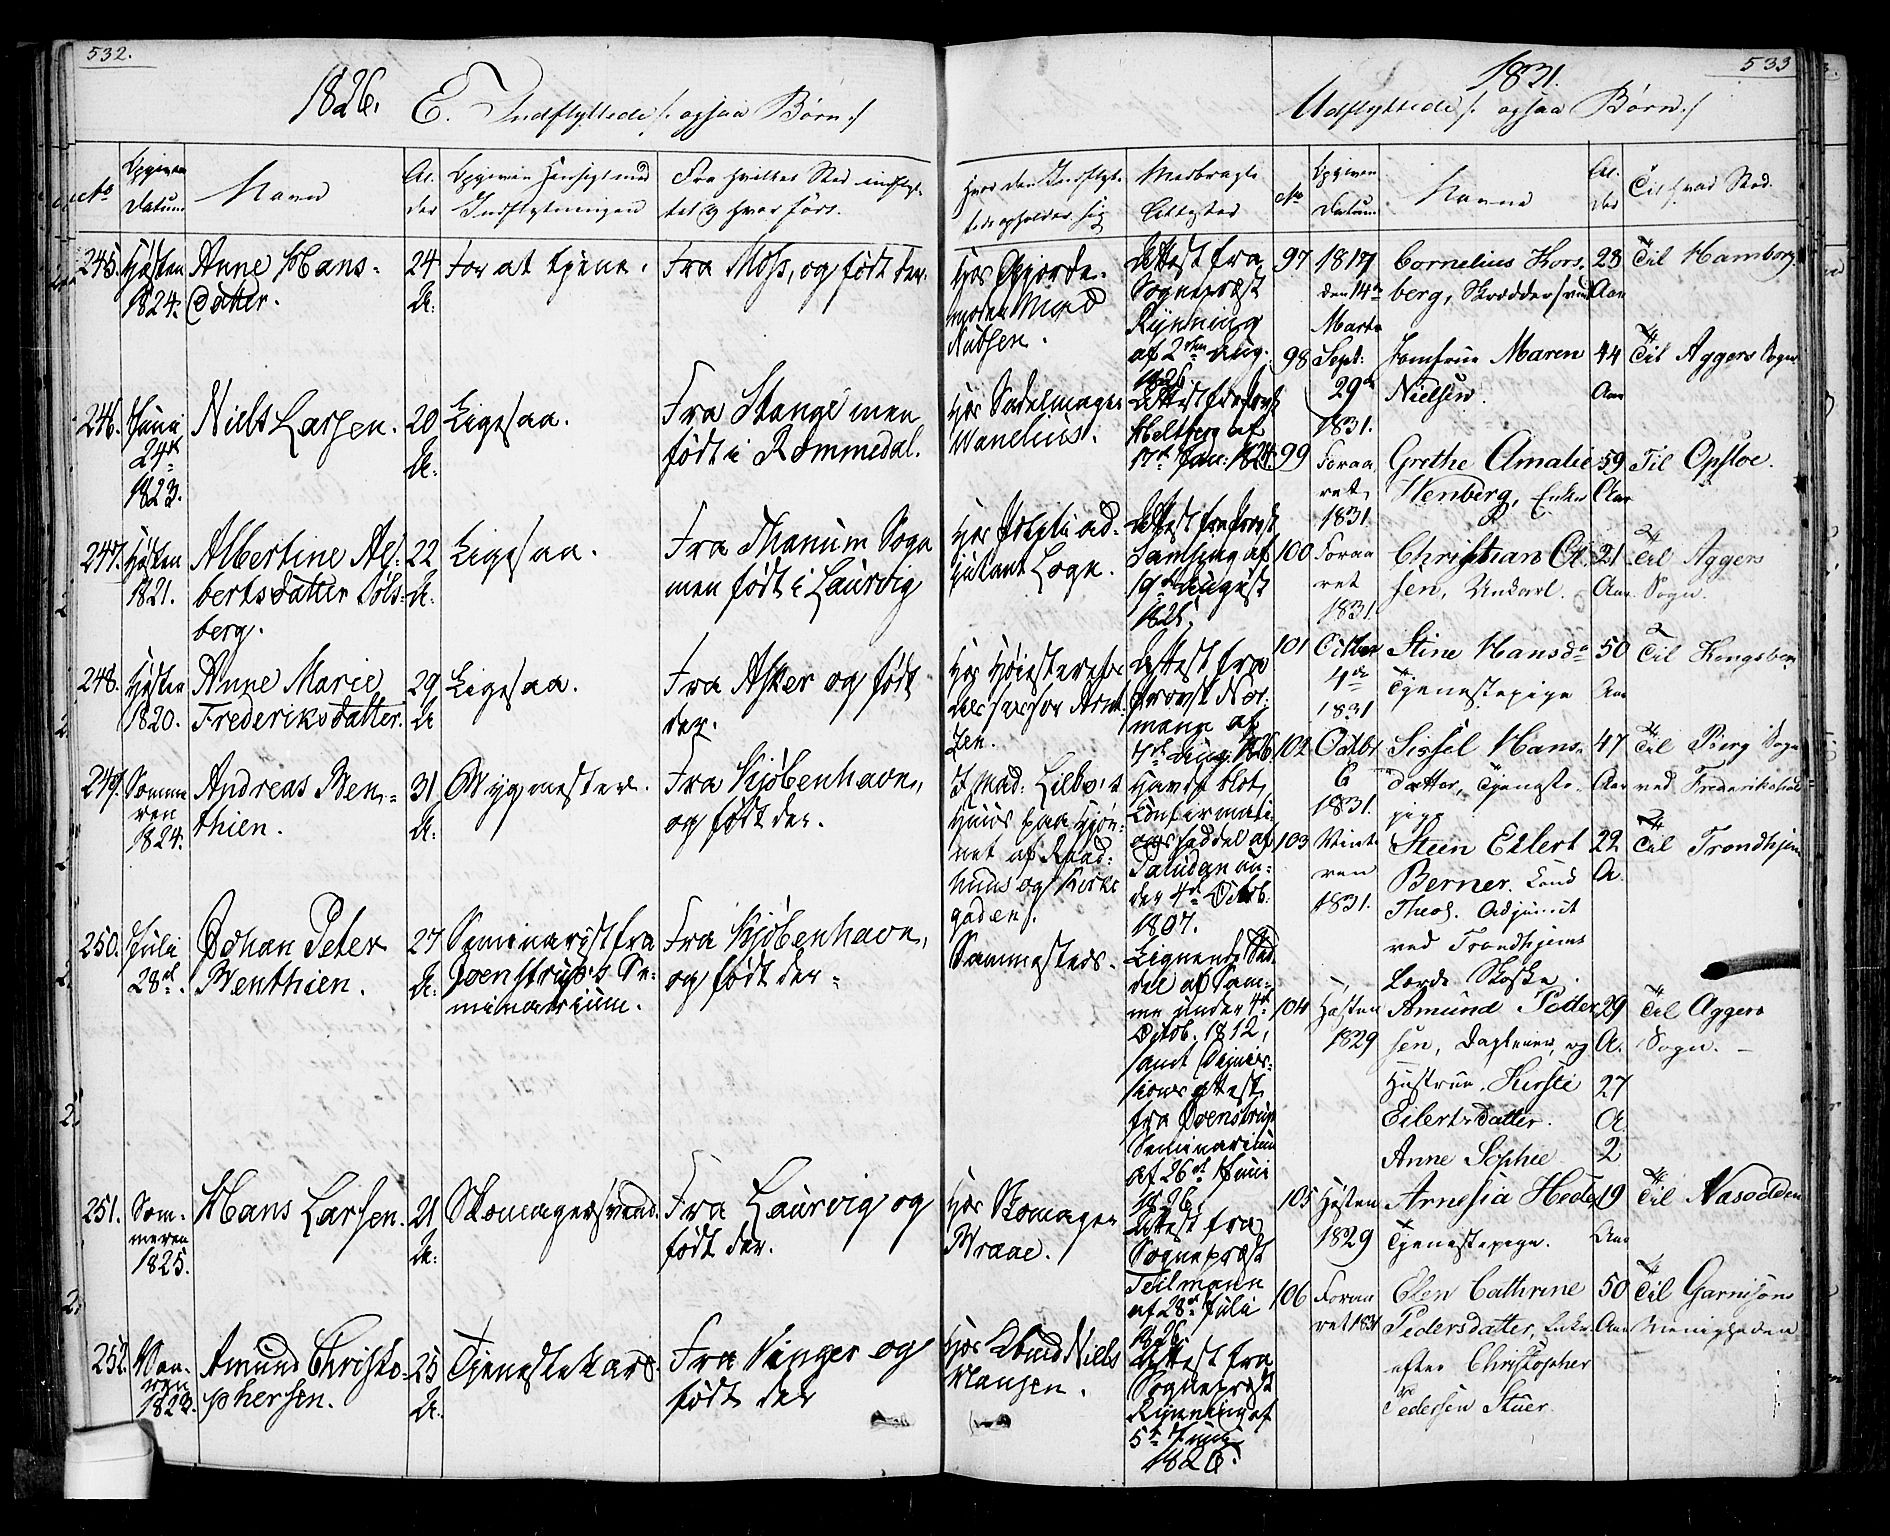 532.
1826.
E. Indflyttede /: ogsaa Børn :/
No
Opgiven Datum
Navn
Al-der
Opgiven Hensigt med Indflytningen
Fra hvilket Sted indflyt-tet og hvor født.
Hvor den Indflyt-tede opholder sig
Medbragte Attester
245.
Høsten
1824.
Anne Hans-
datter.
24
A:
For at tjene.
Fra Moss, og født der.
Hos Gjørde-
moder Mad
Knudsen.
Attest fra
Sognepræst
Rynning
af 2den Aug.
1826
246.
Juni
24de
1823.
Niels Larsen.
20
A:
Ligesaa.
Fra Stange men
født i Rommedal.
Hos Sadelmager
Wanelius.
Attest fra Provst
Heltberg af
17de Jan. 1824
247.
Høsten
1821.
Albertine Al-
bertsdatter Døls-
berg.
22
A:
Ligesaa.
Fra Thanum Sogn
men født i Laurvig
Hos Politi ad-
jutant Logn.
Attest fra Provst
af
19de August
248.
Høsten
1820.
Anne Marie
Frederiksdatter.
29
A
Ligesaa.
Fra Asker og født
der.
Hos Høiesterets
Assessor Arnt-
zen.
Attest fra
Provst Nor-
mann af
7de Aug. 1826.
249.
Somme
ren
1824.
Andreas Wen-
thien.
31
A:
Bygmester.
Fra Kjøbenhavn,
og født der.
I Mad: Lilbo's
Huus paa Hjør-
net af Raad-
huus og Kirke
gaden.
Havde blot
Confirmati
ons seddel af
Paludan un-
der 4de Octob.
1807.
250.
Juli
28de.
Johan Peter
Wenthien.
27
A:
Seminarist fra
Joenstrup's Se-
minarium.
Fra Kjøbenhavn,
og født der.
Sammesteds.
Lignende Sed
del af Sam-
me under 4de
Octob. 1812,
samt Dimis-
sions attest
fra Joenstrup
Seminarium
af 26de Juni
1826.
251.
Som-
meren
1825.
Hans Larsen.
21
A:
Skomagersvend.
Fra Laurvig og
født der.
Hos Skomager
Wraae.
Attest fra
Sognepræst
Teilmann
af 28de Juli
1826
252.
Som-
ren
1823.
Amund Christo-
phersen.
25
A:
Tjenestekarl.
Fra Vinger og
født der
Hos Niels
Hansen.
Attest fra
Sognepræst
Rynning af
5te Juni
1826.
533
1831.
Udflyttede /: ogsaa Børn :/
No
Opgiven Datum
Navne
Al-der
Til hvad Sted.
97
1817
den 14de
Marts
Cornelius Kors-
berg, Skrædder svend
23
Aar
Til Hamborg.
98
Sept:
29de
1831.
Jomfrue Maren
Nielsen.
44
Aar
Til Aggers Sogn
99
Foraa
ret,
1831.
Grethe Amalie
Wenberg, Enke
59
Aar
Til Opsloe.
100
Foraa
ret
1831.
Christian Ol-
sen, Unkarl.
21
Aar.
Til Aggers
Sogn.
101
Octber
4de
1831
Stine Hansdr
Tjenestepige
50
Aar
Til Kongsberg
102
Octbr
6
1831.
Sissel Hans-
datter, Tjeneste-
pige
47
Aar
Til Berg Sogn
ved Frederikshald
103
Vinte
ren
1831.
Steen Eilert
Berner. Cand
Theol. Adjunct
ved Trondhjems
Lærde Skole.
22
A.
Til Trondhjem
104
Høsten
1829
Amund Petter
sen, Dagleier, og
Hustrue, Kirsti
Eilertsdatter.
Anne Sophie
29
A.
27
A.
2
Til Aggers
Sogn. —
105
Høsten
1829
Arnesia Hede
Tjenestepige.
19
Aar
Til Nasodden
106
Foraa
ret 1831
Elen Cathrine
Pedersdatter, Enke
efter Christopher
Pedersen Stuer.
50
Aar
Til Garnisons
Menigheden